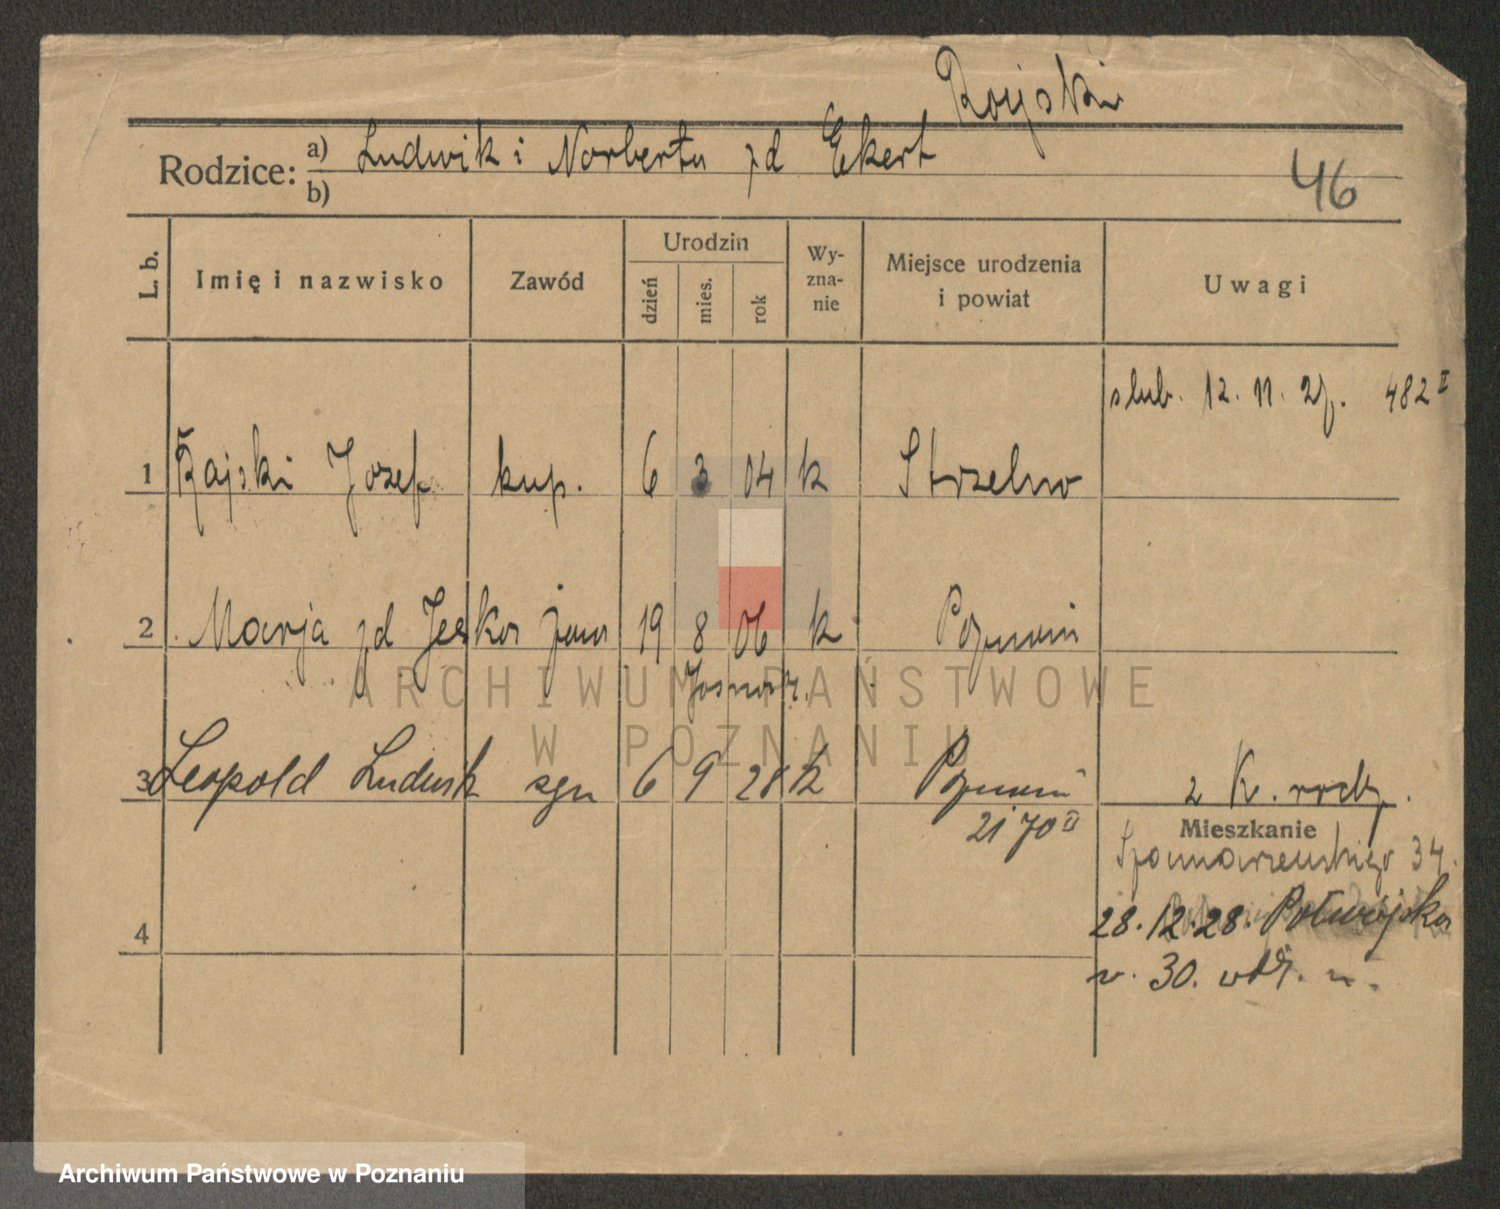 Rajski
Rodzice: a) Ludwik i Norberta zd Ekert
b)
46
L. b.
Imię i nazwisko
Zawód
Urodzin
dzień
mies.
rok
Wy-
zna-
nie
Miejsce urodzenia
i powiat
Uwagi
slub. 12. 11. 27. 482 II
1 Rajski Jozef kup. 6 3 04 k Strzelno
2 Marja zd Jeska żona 19 8 06 k Poznań
3 Leopold Ludwik syn 6 9 28 k Poznań 2 K.
2170 II
Mieszkanie
34.
28.12.28. Półwiejska
4
30.
ARCHIWUM PAŃSTWOWE
W POZNANIU
Archiwum Państwowe w Poznaniu